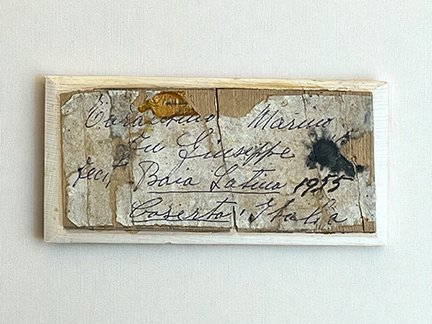 Marino
Fu Giuseppe
Baia Latina 1955
Caserta, Italia